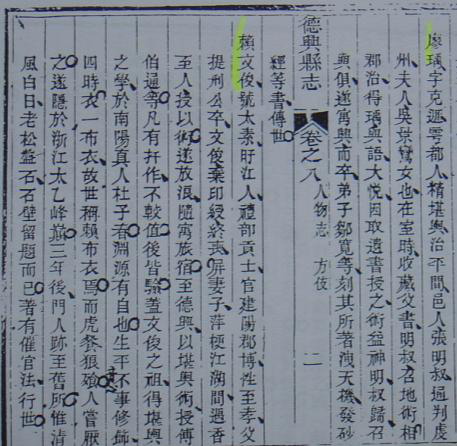 廖瑀字克逥雩都人精堪輿治平間邑人張明叔通判虔
州夫人吳景鸞女也在室時收藏父書明叔召地術相
郡治得瑀與語大悅因取遺書授之術益神明叔歸召
與俱遂寓興而卒弟子鄒寬等刻其所著洩天機發砂
德興縣志 卷之八 人物志 方伎 二
輝等書傳世
賴文俊號太素盱江人禮部貢士官建陽郡博性至孝父
提刑公卒文俊棄印綬終喪屏妻子萍梗江湖間遇
至人授以術遂放浪隨寓旅宿至德興以堪輿術授傅
伯通等凡有扦作不較值後皆驗蓋文俊之祖得堪輿
之學於南陽真人杜子春淵源有自也生平不事修飾
四時衣一布衣故世稱賴布衣焉而虎豺狼飧人嘗厭
之遂隱於浙江太乙峰巔三年後門人跡至舊所惟清
風白日老松盤石石壁留題而已著有催官法行世